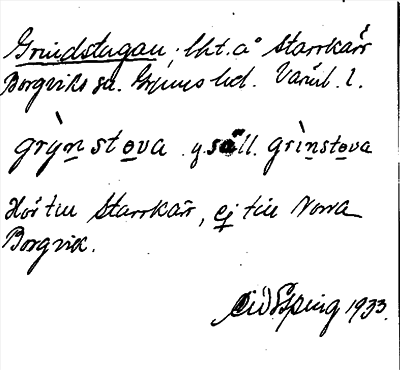 Grindstugan, lht. å Starrkärr
Borgviks sn. Grums hd. Värml. l.
grỳn stova y. säll. grìnstova
Hör till Starrkärr, ej till Norra
Borgvik.
1933.